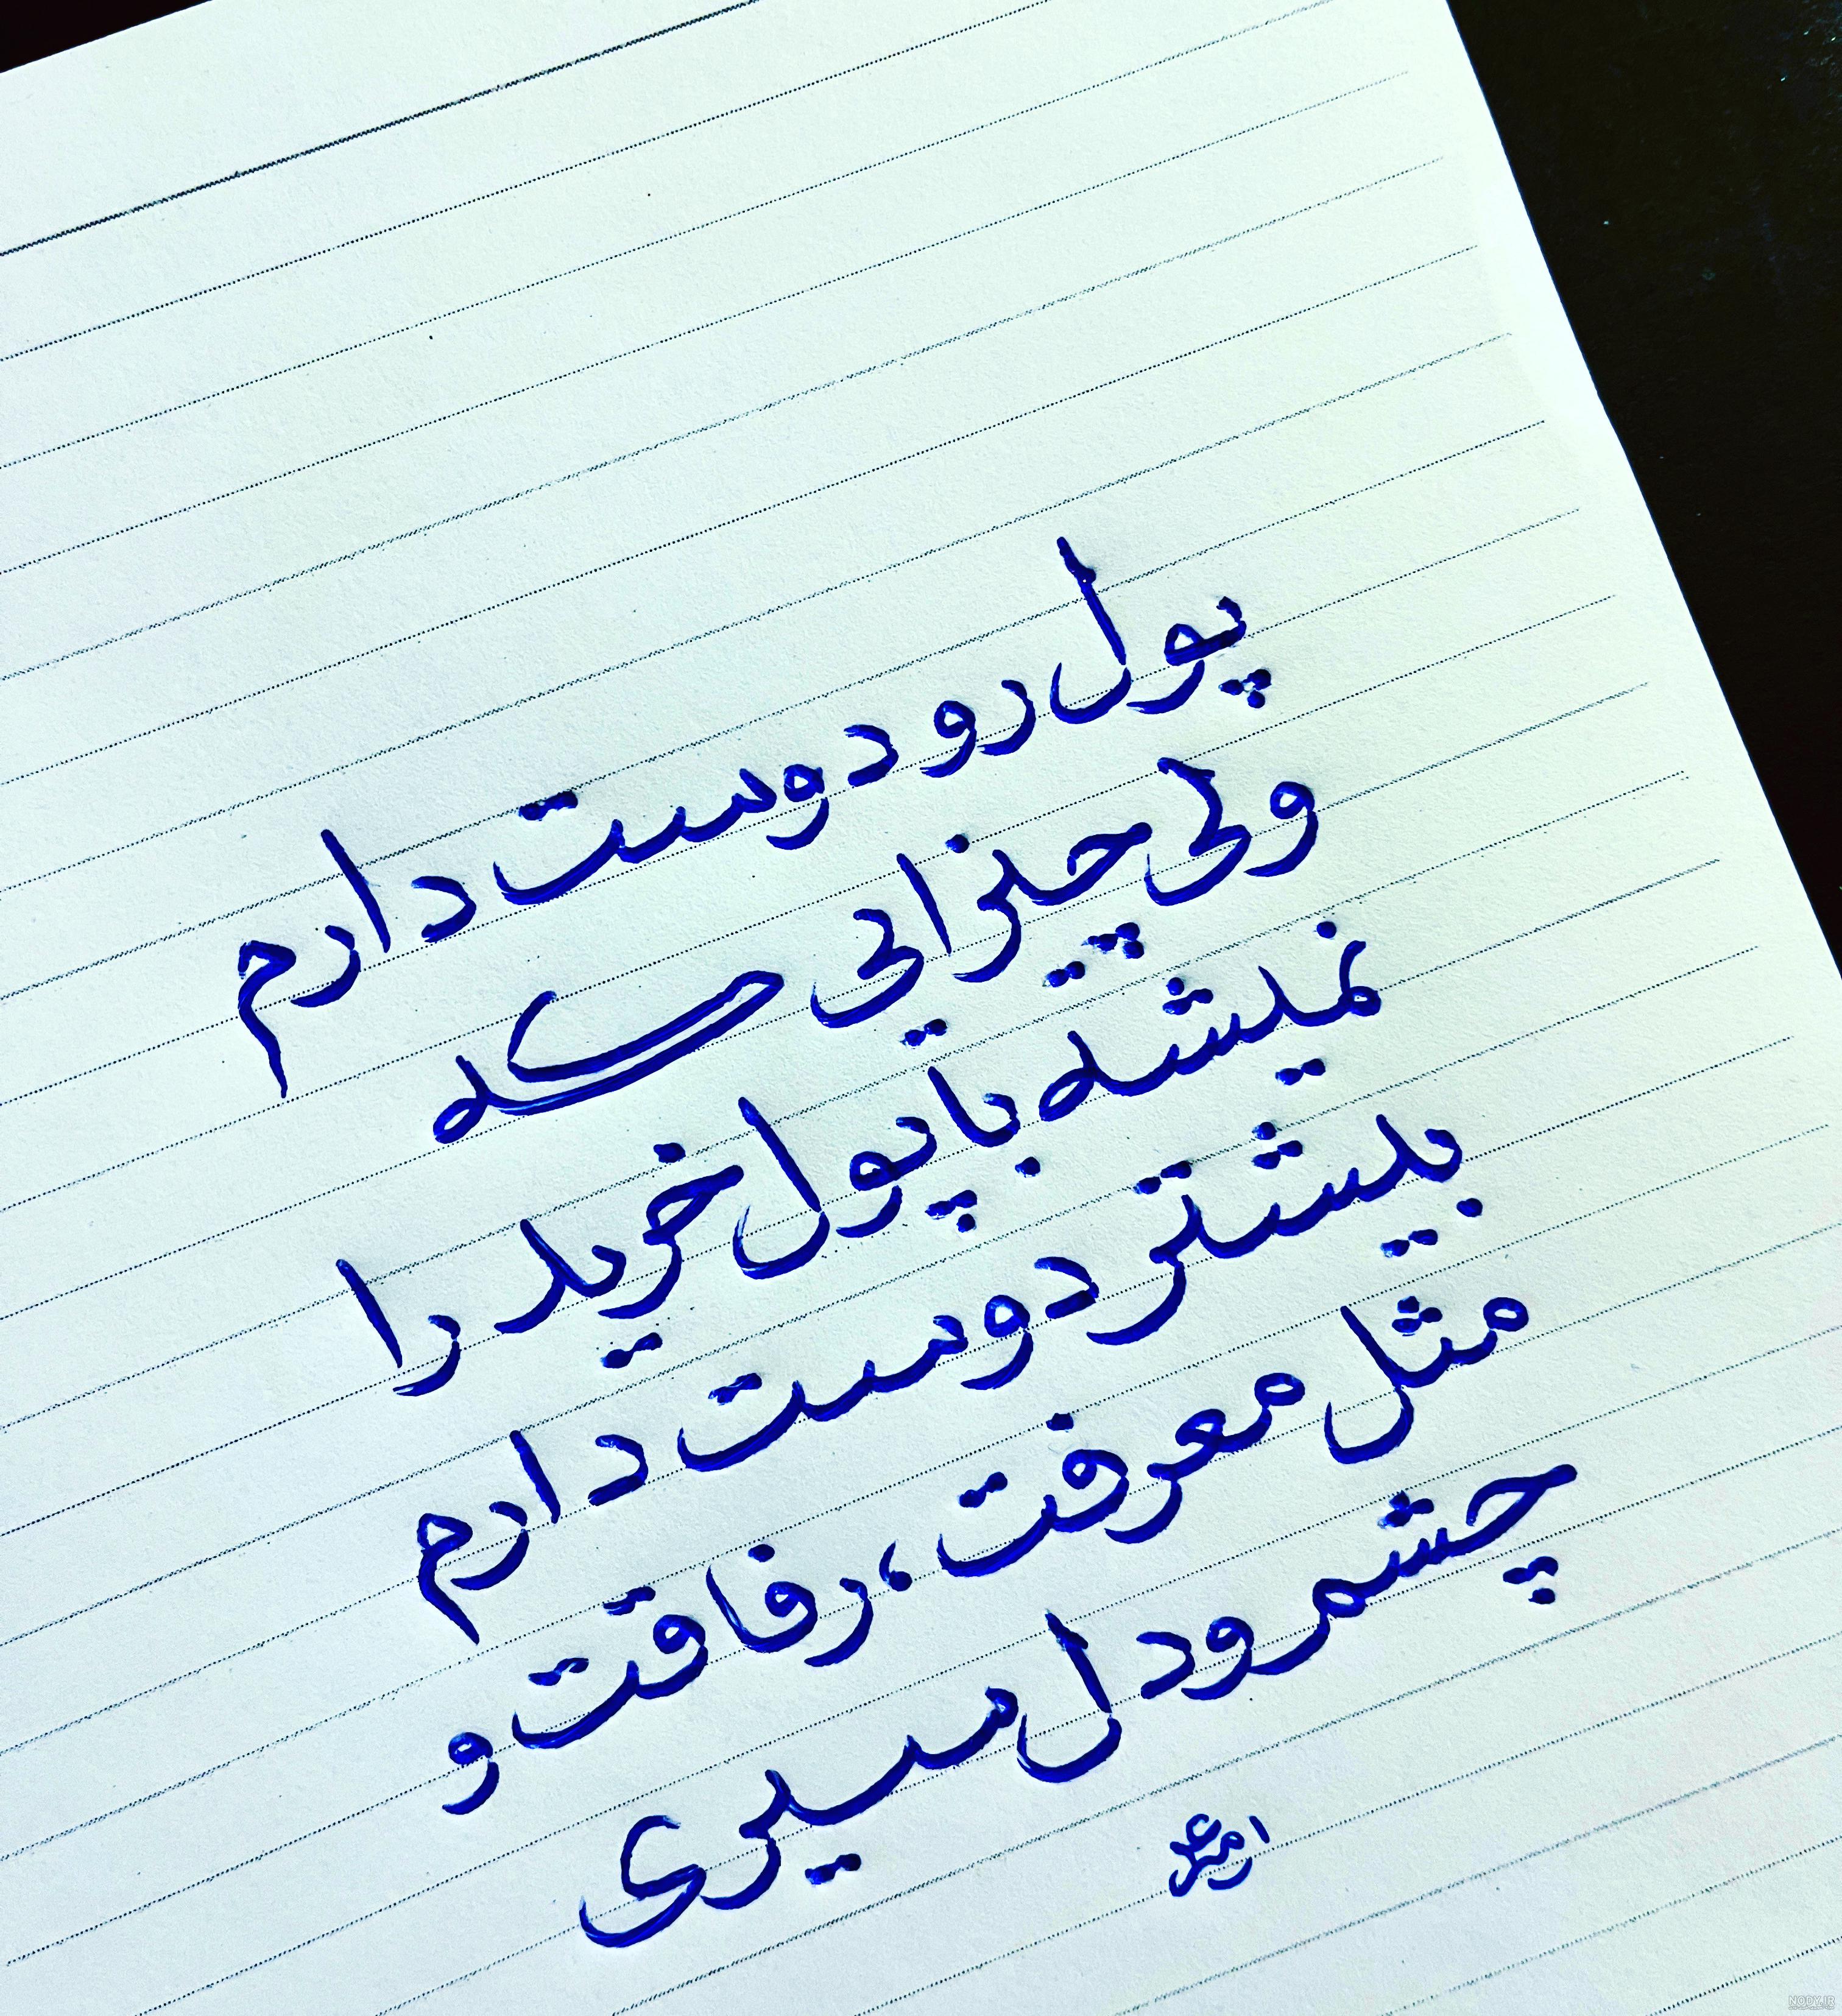 پول رو دوست دارم
ولی چیزایی که
نمیشه با پول خرید را
بیشتر دوست دارم
مثل معرفت، رفاقت و
چشم و دل سیری
NODY.IR